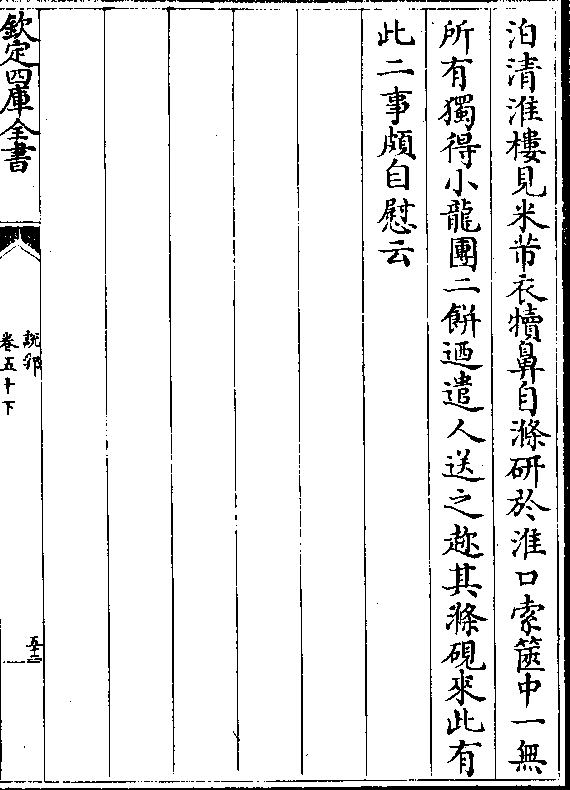 泊清淮樓見米芾衣犢鼻自滌研於淮口索篋中一無
所有獨得小龍團二餅迺遣人送之趂其滌硯來此有
此二事頗自慰云
欽定四庫全書
說郛
卷五十下
五十二